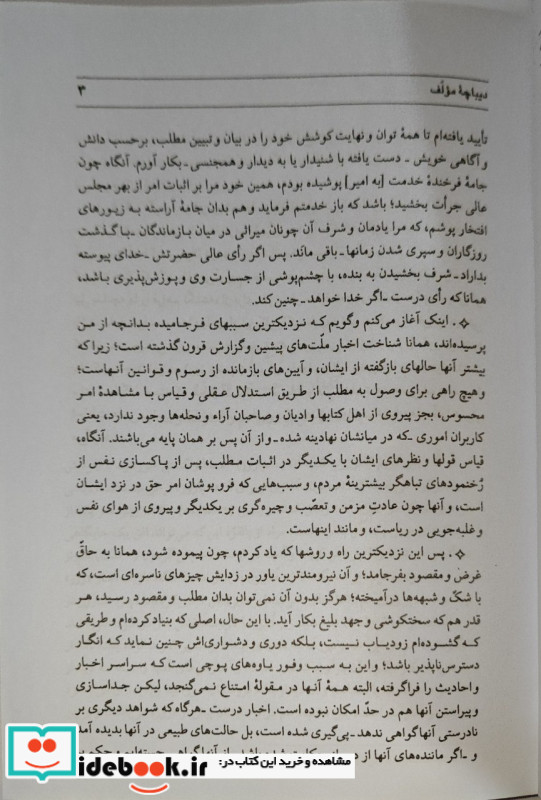 دیباچهٔ مؤلّف ۳
تأیید یافته‌ام تا همهٔ توان و نهایت کوشش خود را در بیان و تبیین مطلب، برحسب دانش
و آگاهی خویش ـ دست یافته با شنیدار یا به دیدار و همجنسی ـ بکار آورم. آنگاه چون
جامهٔ فرخندهٔ خدمت [به امیر] پوشیده بودم، همین خود مرا بر اثبات امر از بهر مجلس
عالی جرأت بخشید؛ باشد که باز خدمتم فرماید و هم بدان جامهٔ آراسته به زیورهای
افتخار پوشم، که مرا یادمان و شرف آن چونان میراثی در میان بازماندگان ـ با گذشت
روزگاران و سپری شدن زمانها ـ باقی مانَد. پس اگر رأی عالی حضرتش ـ خدای پیوسته
بداراد ـ شرف بخشیدن به بنده، با چشم‌پوشی از جسارت وی و پوزش‌پذیری باشد،
همانا که رأی درست ـ اگر خدا خواهد ـ چنین کند.
. اینک آغاز می‌کنم و گویم که نزدیکترین سببهای فرجامیده بدانچه از من
پرسیده‌اند، همانا شناخت اخبار ملّت‌های پیشین و گزارش قرون گذشته است؛ زیرا که
بیشتر آنها حالهای بازگفته از ایشان، و آیین‌های بازمانده از رسوم و قوانین آنهاست؛
و هیچ راهی برای وصول به مطلب از طریق استدلال عقلی و قیاس با مشاهدهٔ امر
محسوس، بجز پیروی از اهل کتابها و ادیان و صاحبان آراء و نحله‌ها وجود ندارد، یعنی
کاربران اموری ـ که در میانشان نهادینه شده ـ و از آن پس بر همان پایه می‌باشند. آنگاه،
قیاس قولها و نظرهای ایشان با یکدیگر در اثبات مطلب، پس از پاکسازی نفس از
رُخنمودهای تباهگر بیشترینهٔ مردم، و سبب‌هایی که فرو پوشان امر حق در نزد ایشان
است، و آنها چون عادتِ مزمن و تعصّب و چیره‌گری بر یکدیگر و پیروی از هوای نفس
و غلبه‌جویی در ریاست، و مانند اینهاست.
. پس این نزدیکترین راه و روشها که یاد کردم، چون پیموده شود، همانا به حاقّ
غرض و مقصود بفرجامد؛ و آن نیرومندترین یاور در زدایش چیزهای ناسره‌ای است، که
با شکّ و شبهه‌ها درآمیخته؛ هرگز بدون آن نمی‌توان بدان مطلب و مقصود رسید، هر
قدر هم که سختکوشی و جهد بلیغ بکار آید. با این حال، اصلی که بنیاد کرده‌ام و طریقی
که گشوده‌ام زودیاب نیست، بلکه دوری و دشواری‌اش چنین نماید که انگار
دسترس‌ناپذیر باشد؛ و این به سبب وفور یاوه‌های پوچی است که سراسر اخبار
و احادیث را فراگرفته، البته همهٔ آنها در مقولهٔ امتناع نمی‌گنجد، لیکن جداسازی
و پیراستن آنها هم در حدّ امکان نبوده است. اخبار درست ـ هرگاه که شواهد دیگری بر
نادرستی آنها گواهی ندهد ـ پی‌گیری شده است، بل حالت‌های طبیعی در آنها بدیده آمده
و ـ اگر ماننده‌های آنها از
iidebook.ir
مشاهده و خرید این کتاب در: